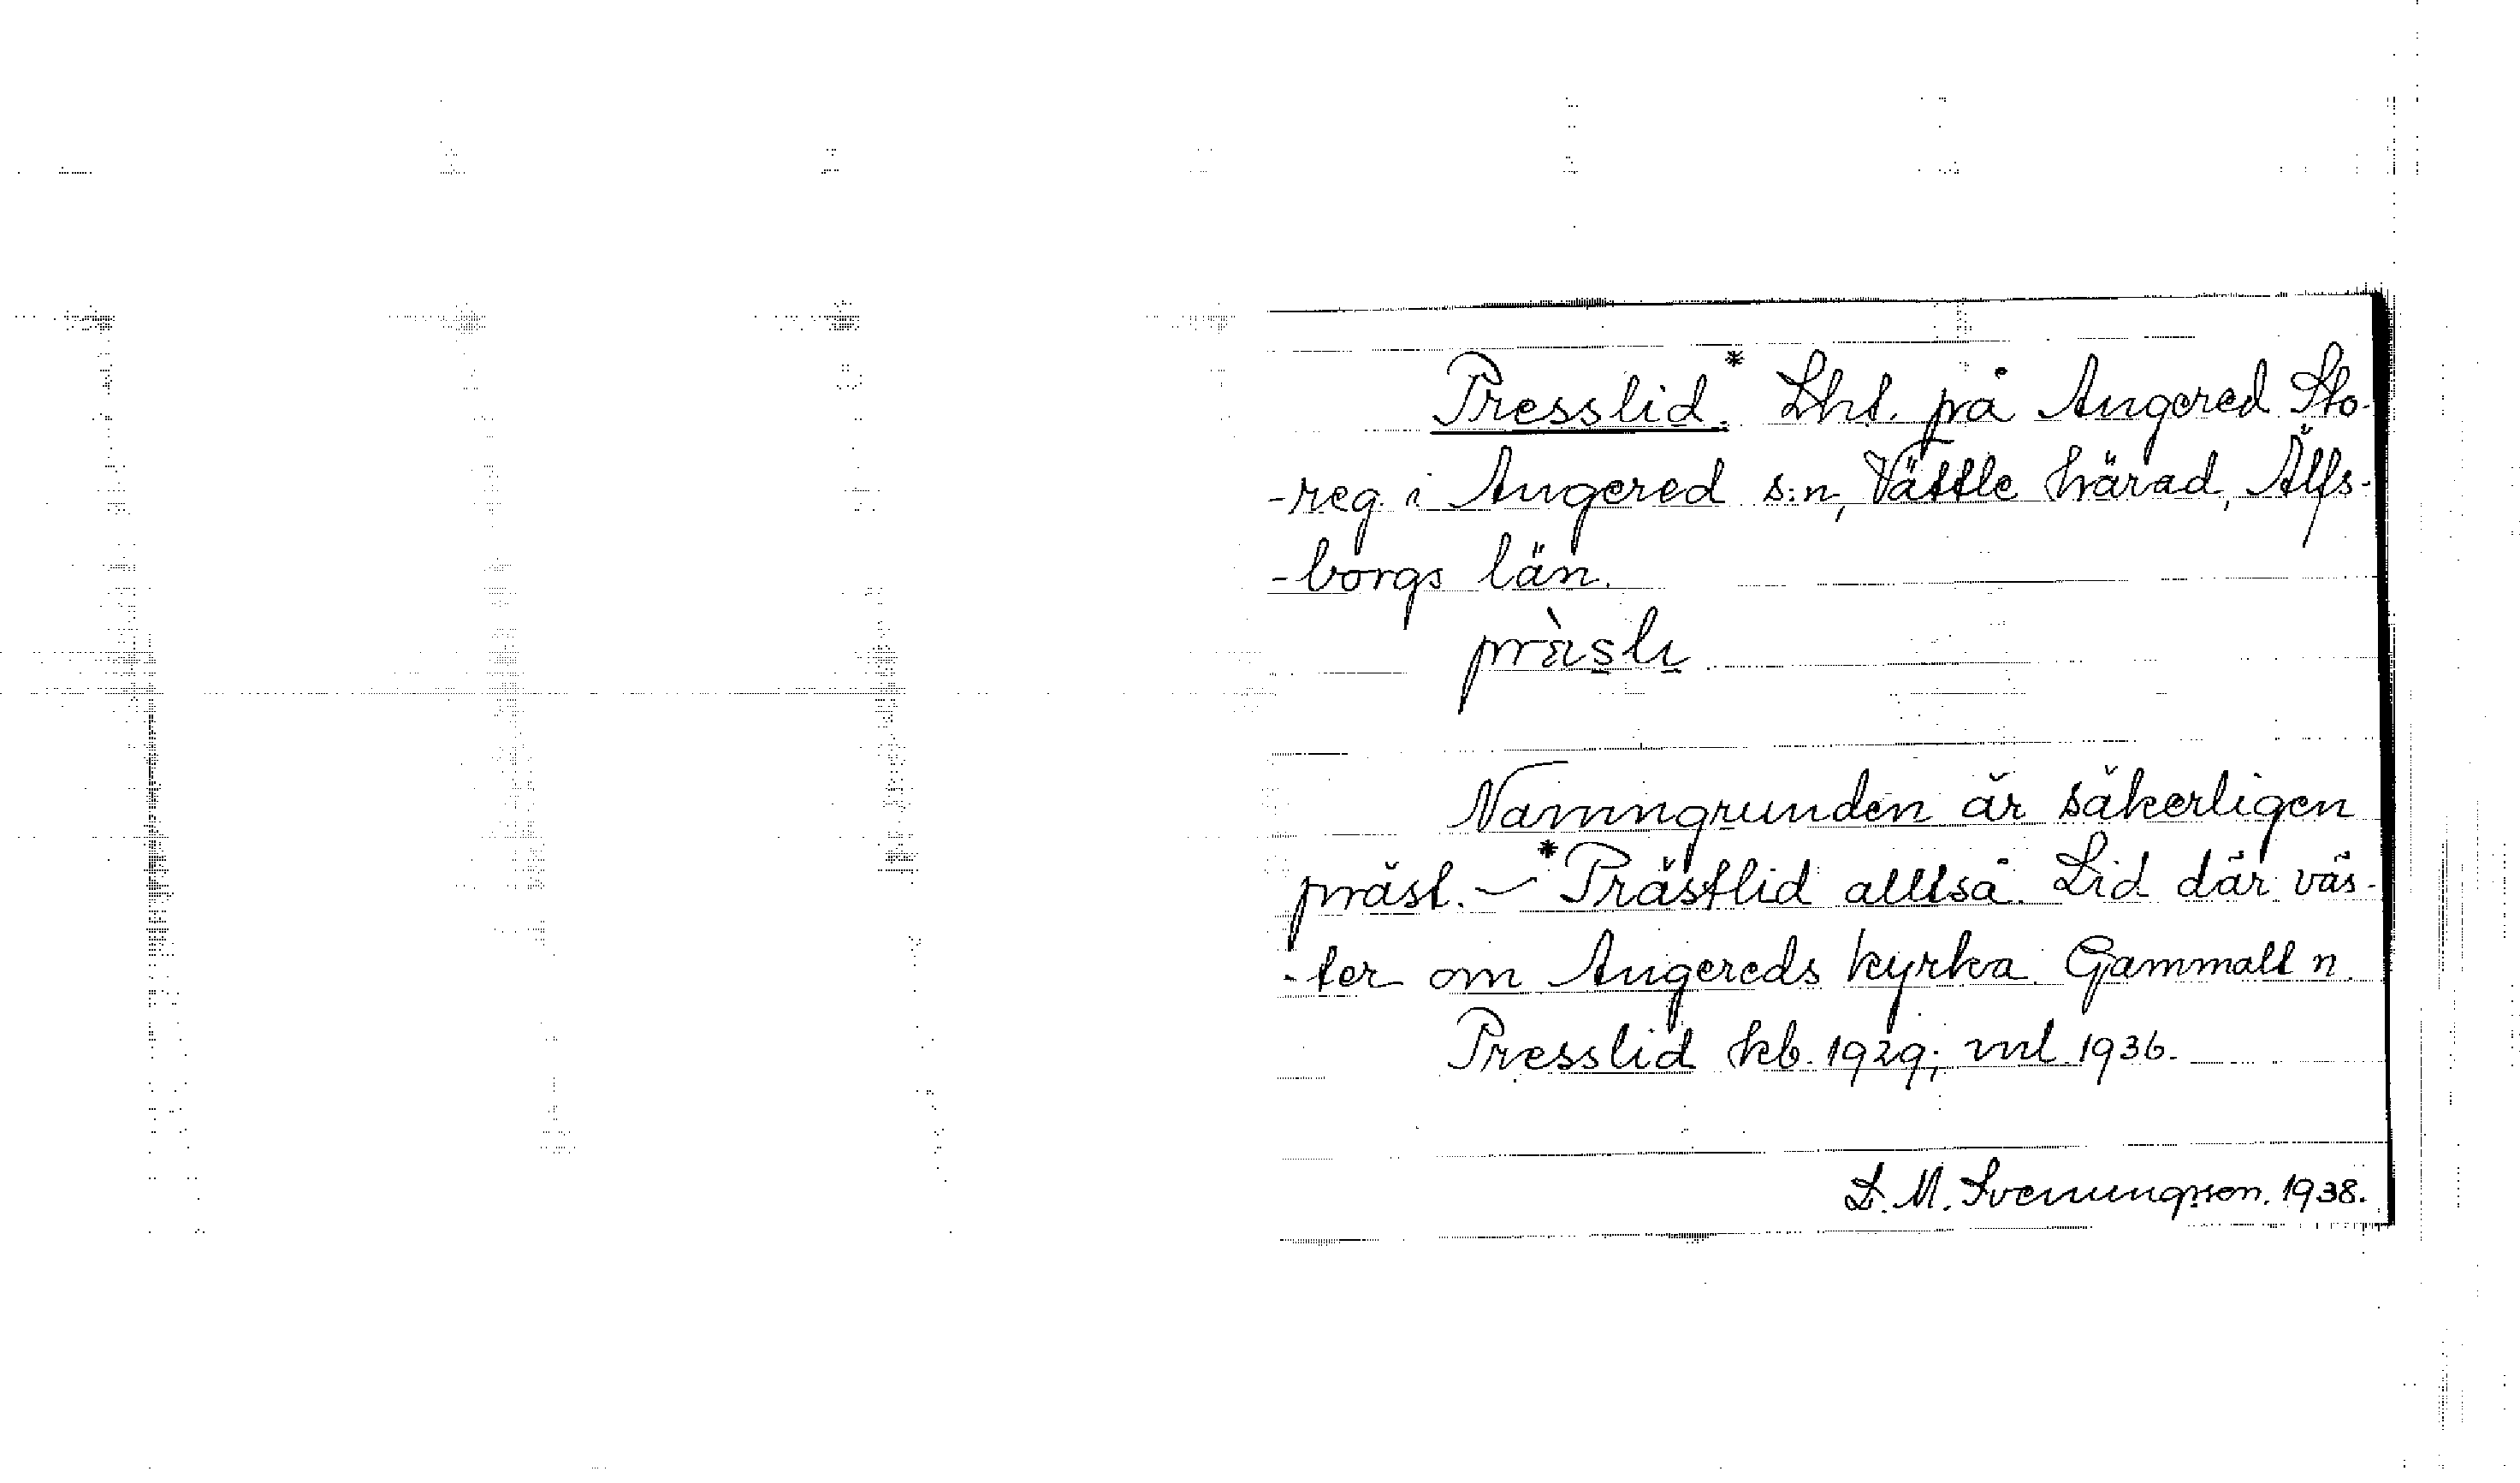 Presslid.* Lht. på Angered Sto-
-reg. i Angered s:n, Vättle härad, Älfs-
-borgs län.
Namngrunden är säkerligen
präst. — *Prästlid alltså. Lid där väs-
-ter om Angereds kyrka. Gammalt n.
Presslid kb. 1929; ml 1936.
L. M. Svenungsson. 1938.